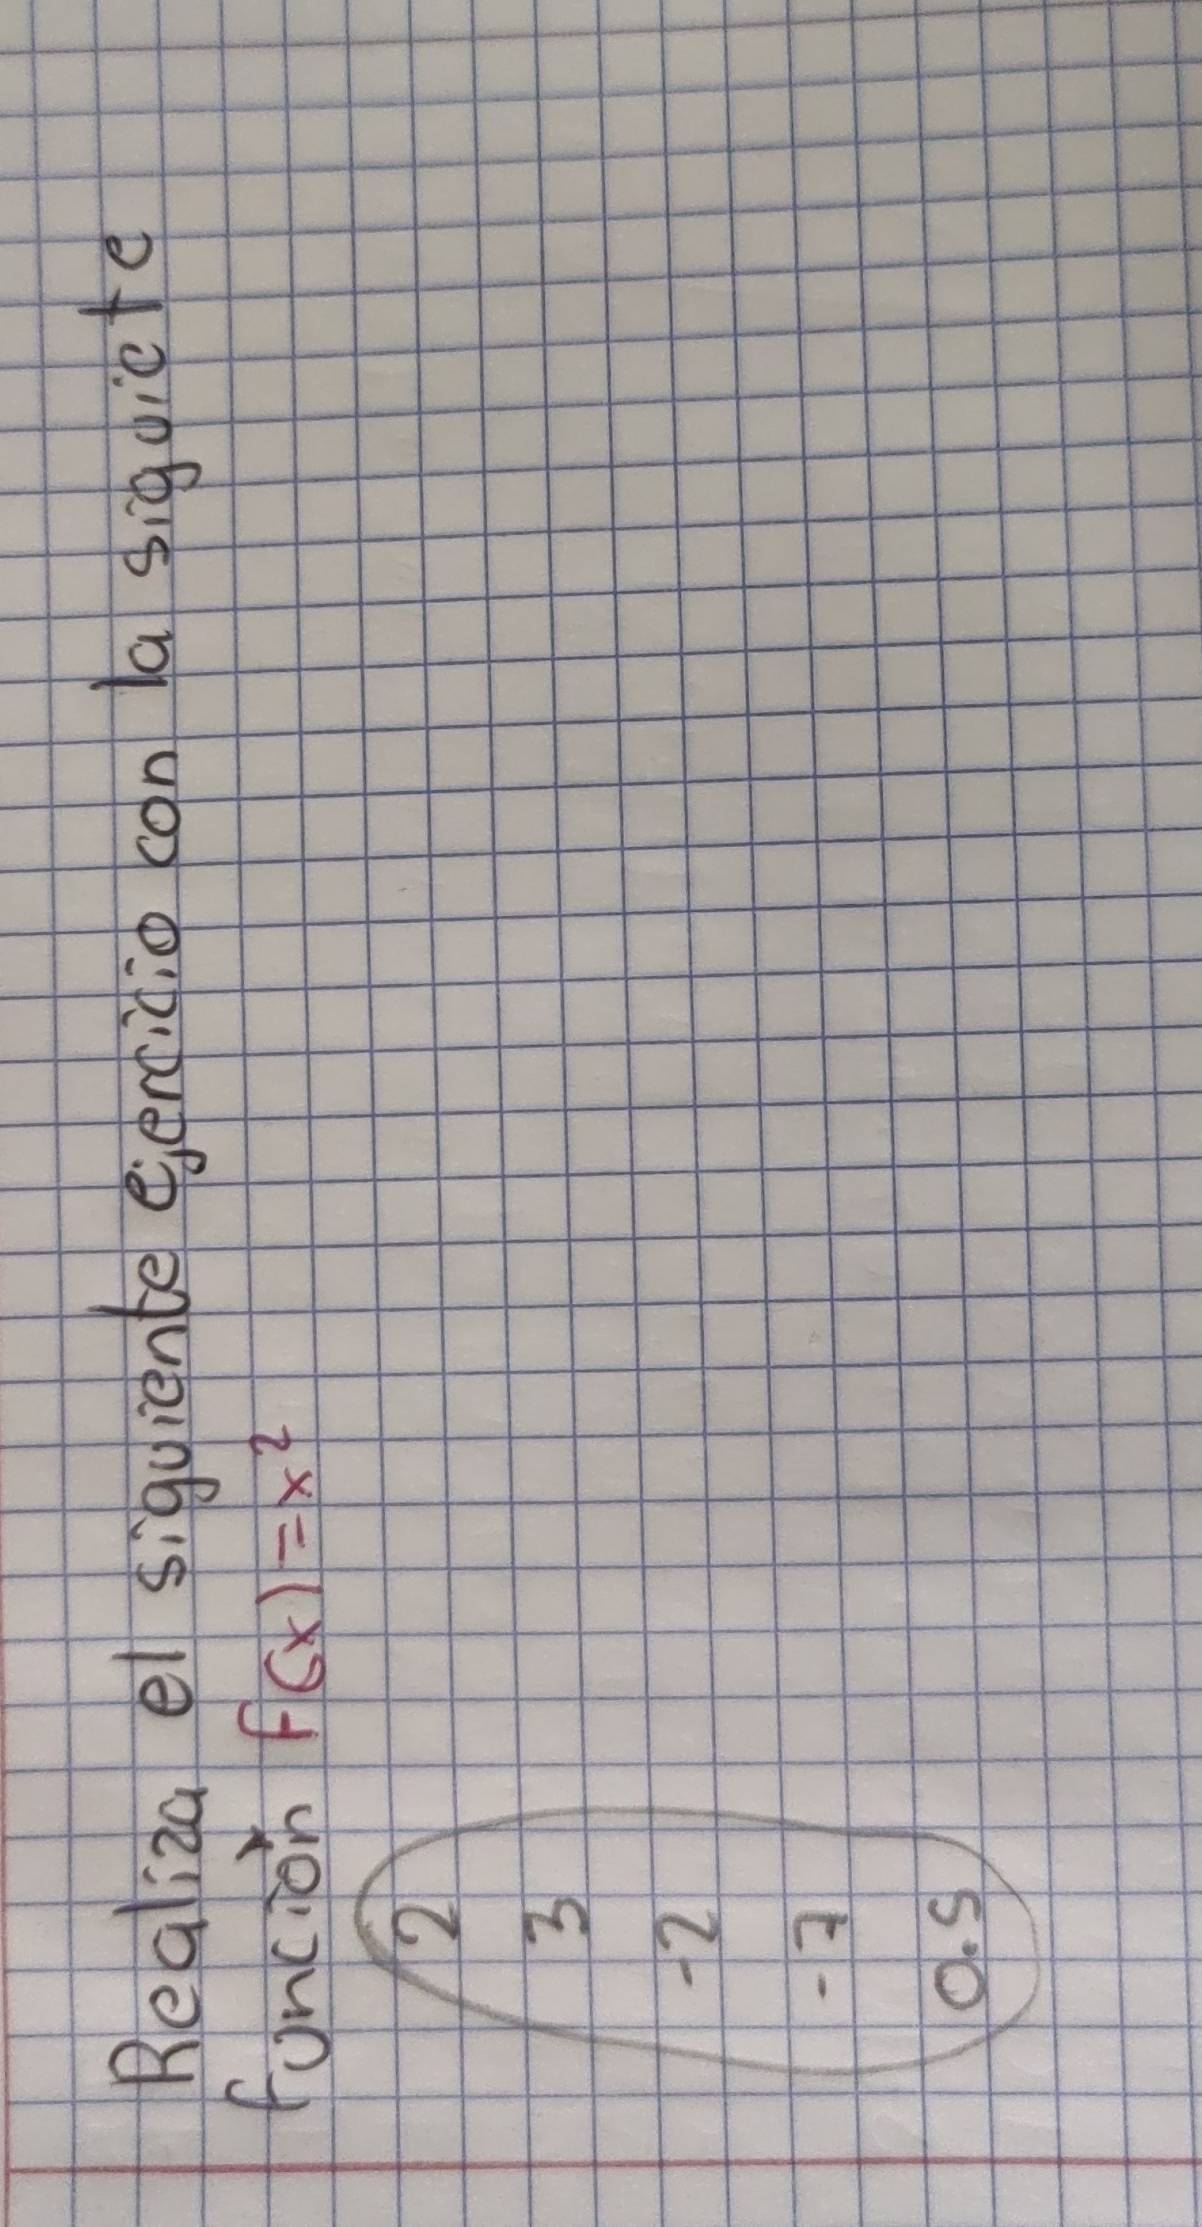 Realiza el siguiente ejercicio con la siguiete
función f(x)=x²
2
3
-2
-7
0.5